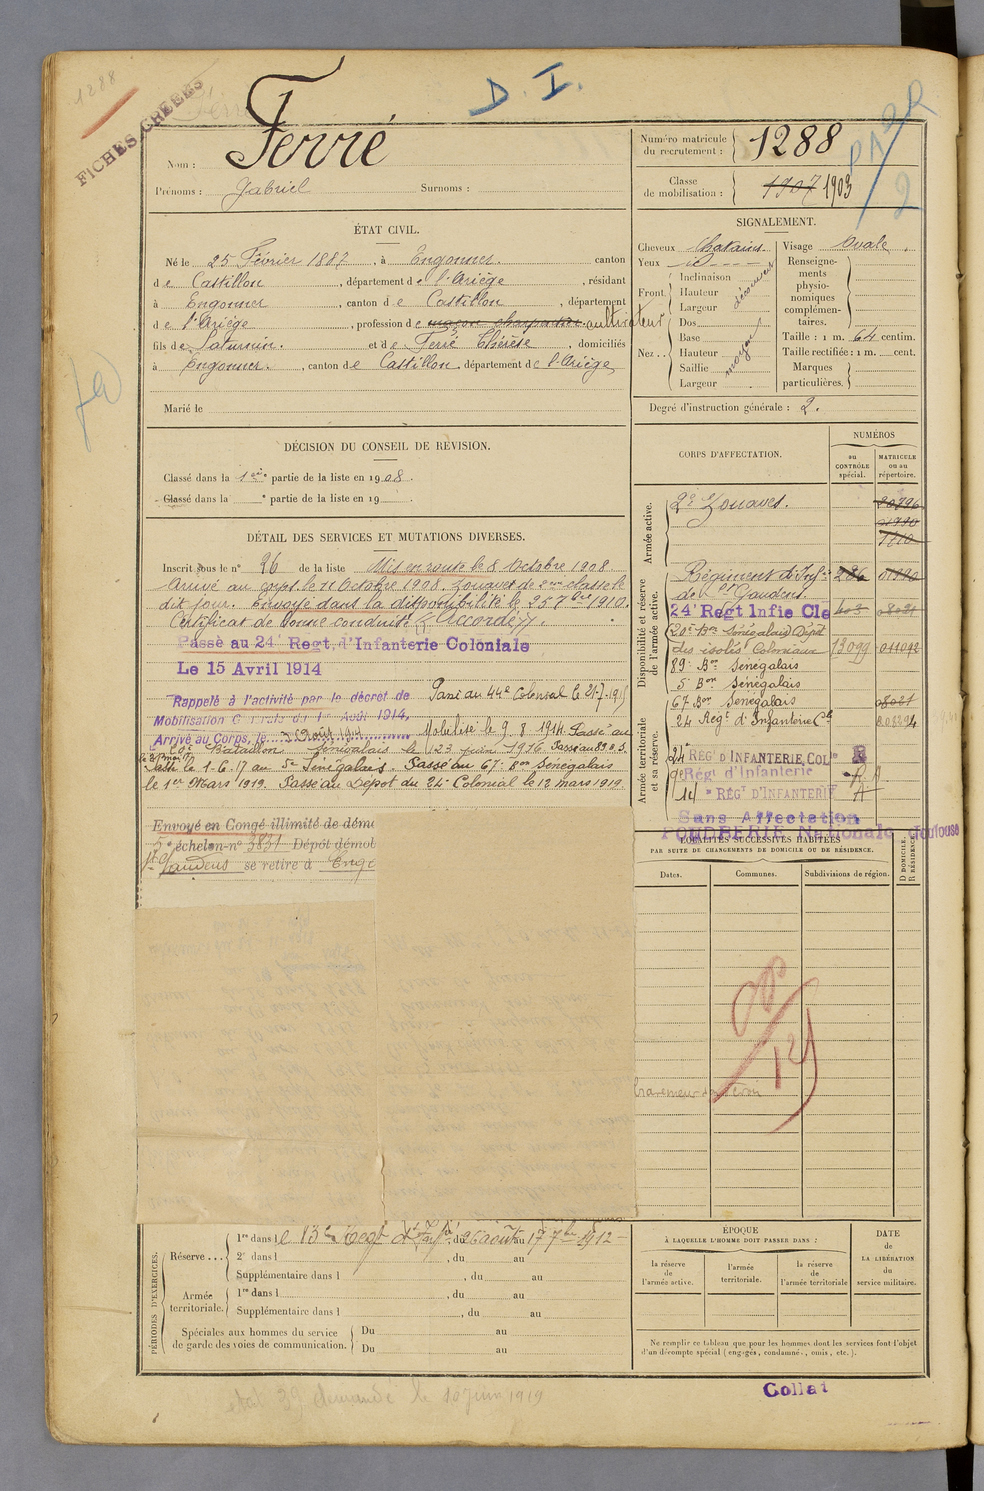 1288
FICHES CRÉÉES
D. I.
Nom : Ferré
Prénoms : Gabriel Surnoms :
Numéro matricule du recrutement : 1288
Classe de mobilisation : 1907 1903
PA 2R
2
ÉTAT CIVIL.
Né le 25 Février 1887, à Engomer, canton
de Castillon, département de l'Ariège, résidant
à Engomer, canton de Castillon, département
de l'Ariège, profession de maçon charpentier cultivateur
fils de Saturnin et de Ferré Thérèse, domiciliés
à Engomer, canton de Castillon, département de l'Ariège
Marié le
SIGNALEMENT.
Cheveux Chatains
Yeux id
Front Inclinaison
Hauteur découvert
Largeur
Nez Dos
Base
Hauteur moyen
Saillie
Largeur
Visage Ovale.
Renseignements physionomiques complémentaires.
Taille : 1 m. 64 centim.
Taille rectifiée : 1 m. cent.
Marques particulières.
Degré d'instruction générale : 2.
DÉCISION DU CONSEIL DE REVISION.
Classé dans la 1ère partie de la liste en 1908.
Classé dans la e partie de la liste en 19
DÉTAIL DES SERVICES ET MUTATIONS DIVERSES.
Inscrit sous le n° 26 de la liste Mis en route le 8 Octobre 1908
Arrivé au corps le 11 Octobre 1908. Zouave de 2me classe le
dit jour. Envoyé dans la disponibilité le 25 7bre 1910.
Certificat de bonne conduite "Accordé".
Passé au 24e Regt. d'Infanterie Coloniale
Le 15 Avril 1914
Rappelé à l'activité par le décret de
Mobilisation Générale du 1er Août 1914,
Arrivé au Corps, le 3 Août 1914
Passé au 44e Colonial le 21-7-1915
Mobilisé le 9. 8. 1914. Passé au
20e Bataillon Sénégalais le 23 juin 1916 Passé au 89 B. S.
Passé le 1-6-17 au 5e Sénégalais. Passé au 67e Bon Sénégalais
le 1er Mars 1919. Passé au Dépot du 24e Colonial le 12 mars 1919.
Envoyé en Congé illimité de démo
5e échelon n° 3831 Dépôt démob
St Gaudens se retire à Engo
CORPS D'AFFECTATION.
NUMÉROS
au CONTRÔLE spécial.
MATRICULE ou au répertoire.
Armée active.
2e Zouaves.
Disponibilité et réserve de l'armée active.
Régiment d'Infie
de St Gaudens
24e Regt Infie Cle
20e Bon Sénégalais Dépôt
des isolés Coloniaux 13099 011092
89e Bon Sénégalais
5e Bon Sénégalais
67 Bon Sénégalais
24 Régt d'Infanterie Cle
Armée territoriale et sa réserve.
24e REGt D'INFANTERIE COLle
9e Régt d'Infanterie
14e REGt D'INFANTERIE
Sans Affectation
POUDRERIE Nationale Toulouse
LOCALITÉS SUCCESSIVES HABITÉES
PAR SUITE DE CHANGEMENTS DE DOMICILE OU DE RÉSIDENCE.
Dates. Communes. Subdivisions de région. D DOMICILE. R RÉSIDENCE.
PÉRIODES D'EXERCICES.
Réserve ... 1re dans le 13e Regt du 26 août au 17 7bre 1912
2e dans l , du au
Supplémentaire dans l , du au
Armée territoriale. 1re dans l , du au
Supplémentaire dans l , du au
Spéciales aux hommes du service de garde des voies de communication. Du au
Du au
ÉPOQUE
À LAQUELLE L'HOMME DOIT PASSER DANS :
la réserve de l'armée active.
l'armée territoriale.
la réserve de l'armée territoriale
DATE DE LA LIBÉRATION du service militaire.
Ne remplir ce tableau que pour les hommes dont les services font l'objet
d'un décompte spécial (engagés, condamnés, omis, etc.).
Collat
état 39 demandé le 10 juin 1919